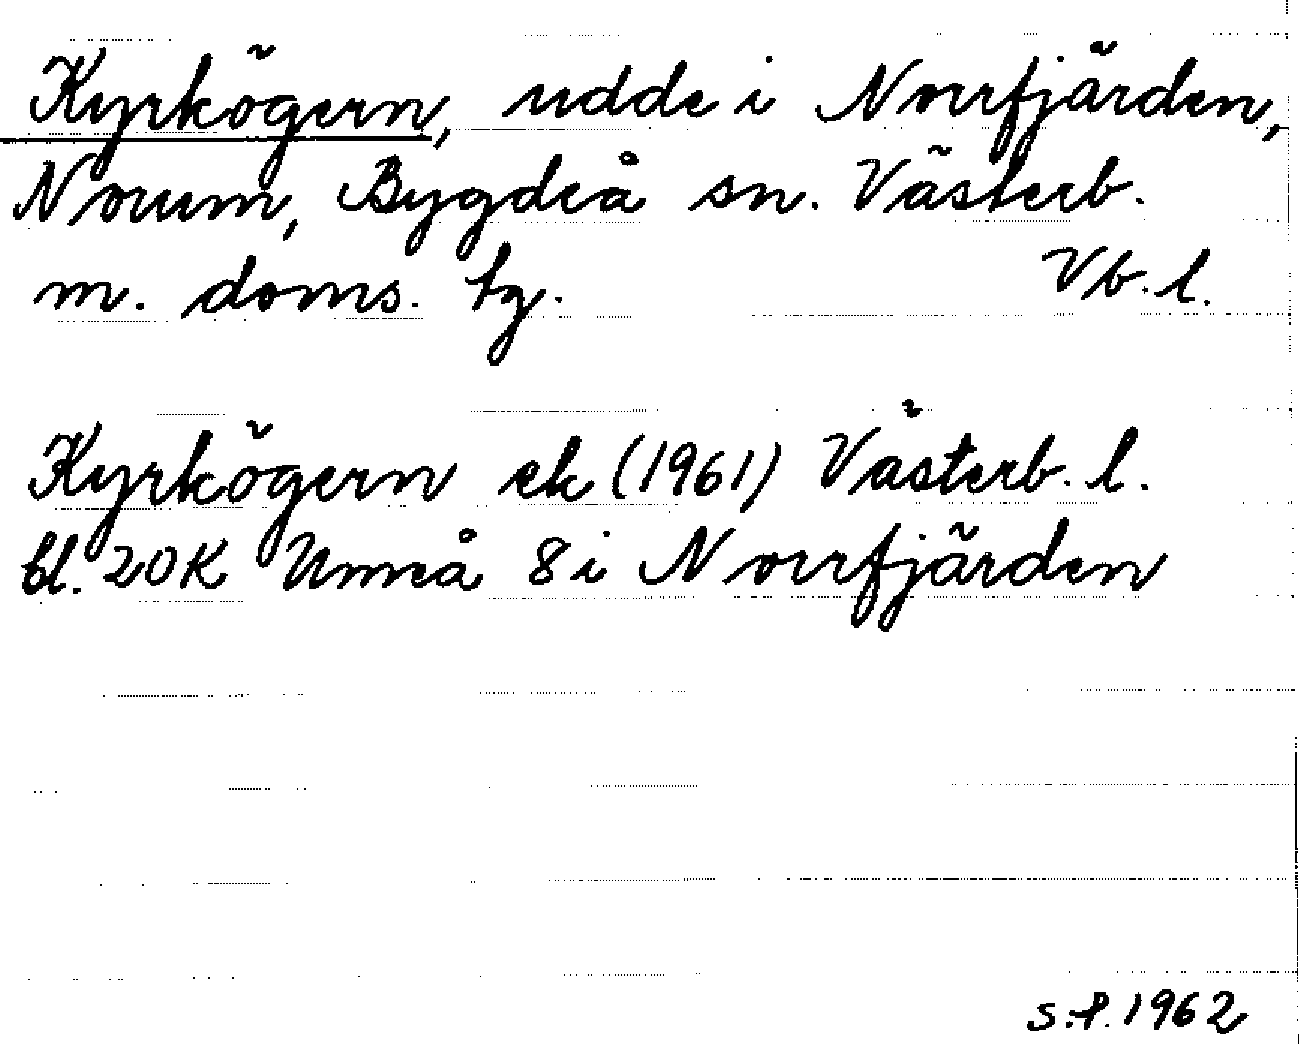 Kyrkögern, udde i Norrfjärden,
Norum, Bygdeå sn. Västerb.
m. doms. tg. Vb. l.
Kyrkögern ek (1961) Västerb. l.
bl. 20K Umeå 8 i Norrfjärden
s.f. 1962